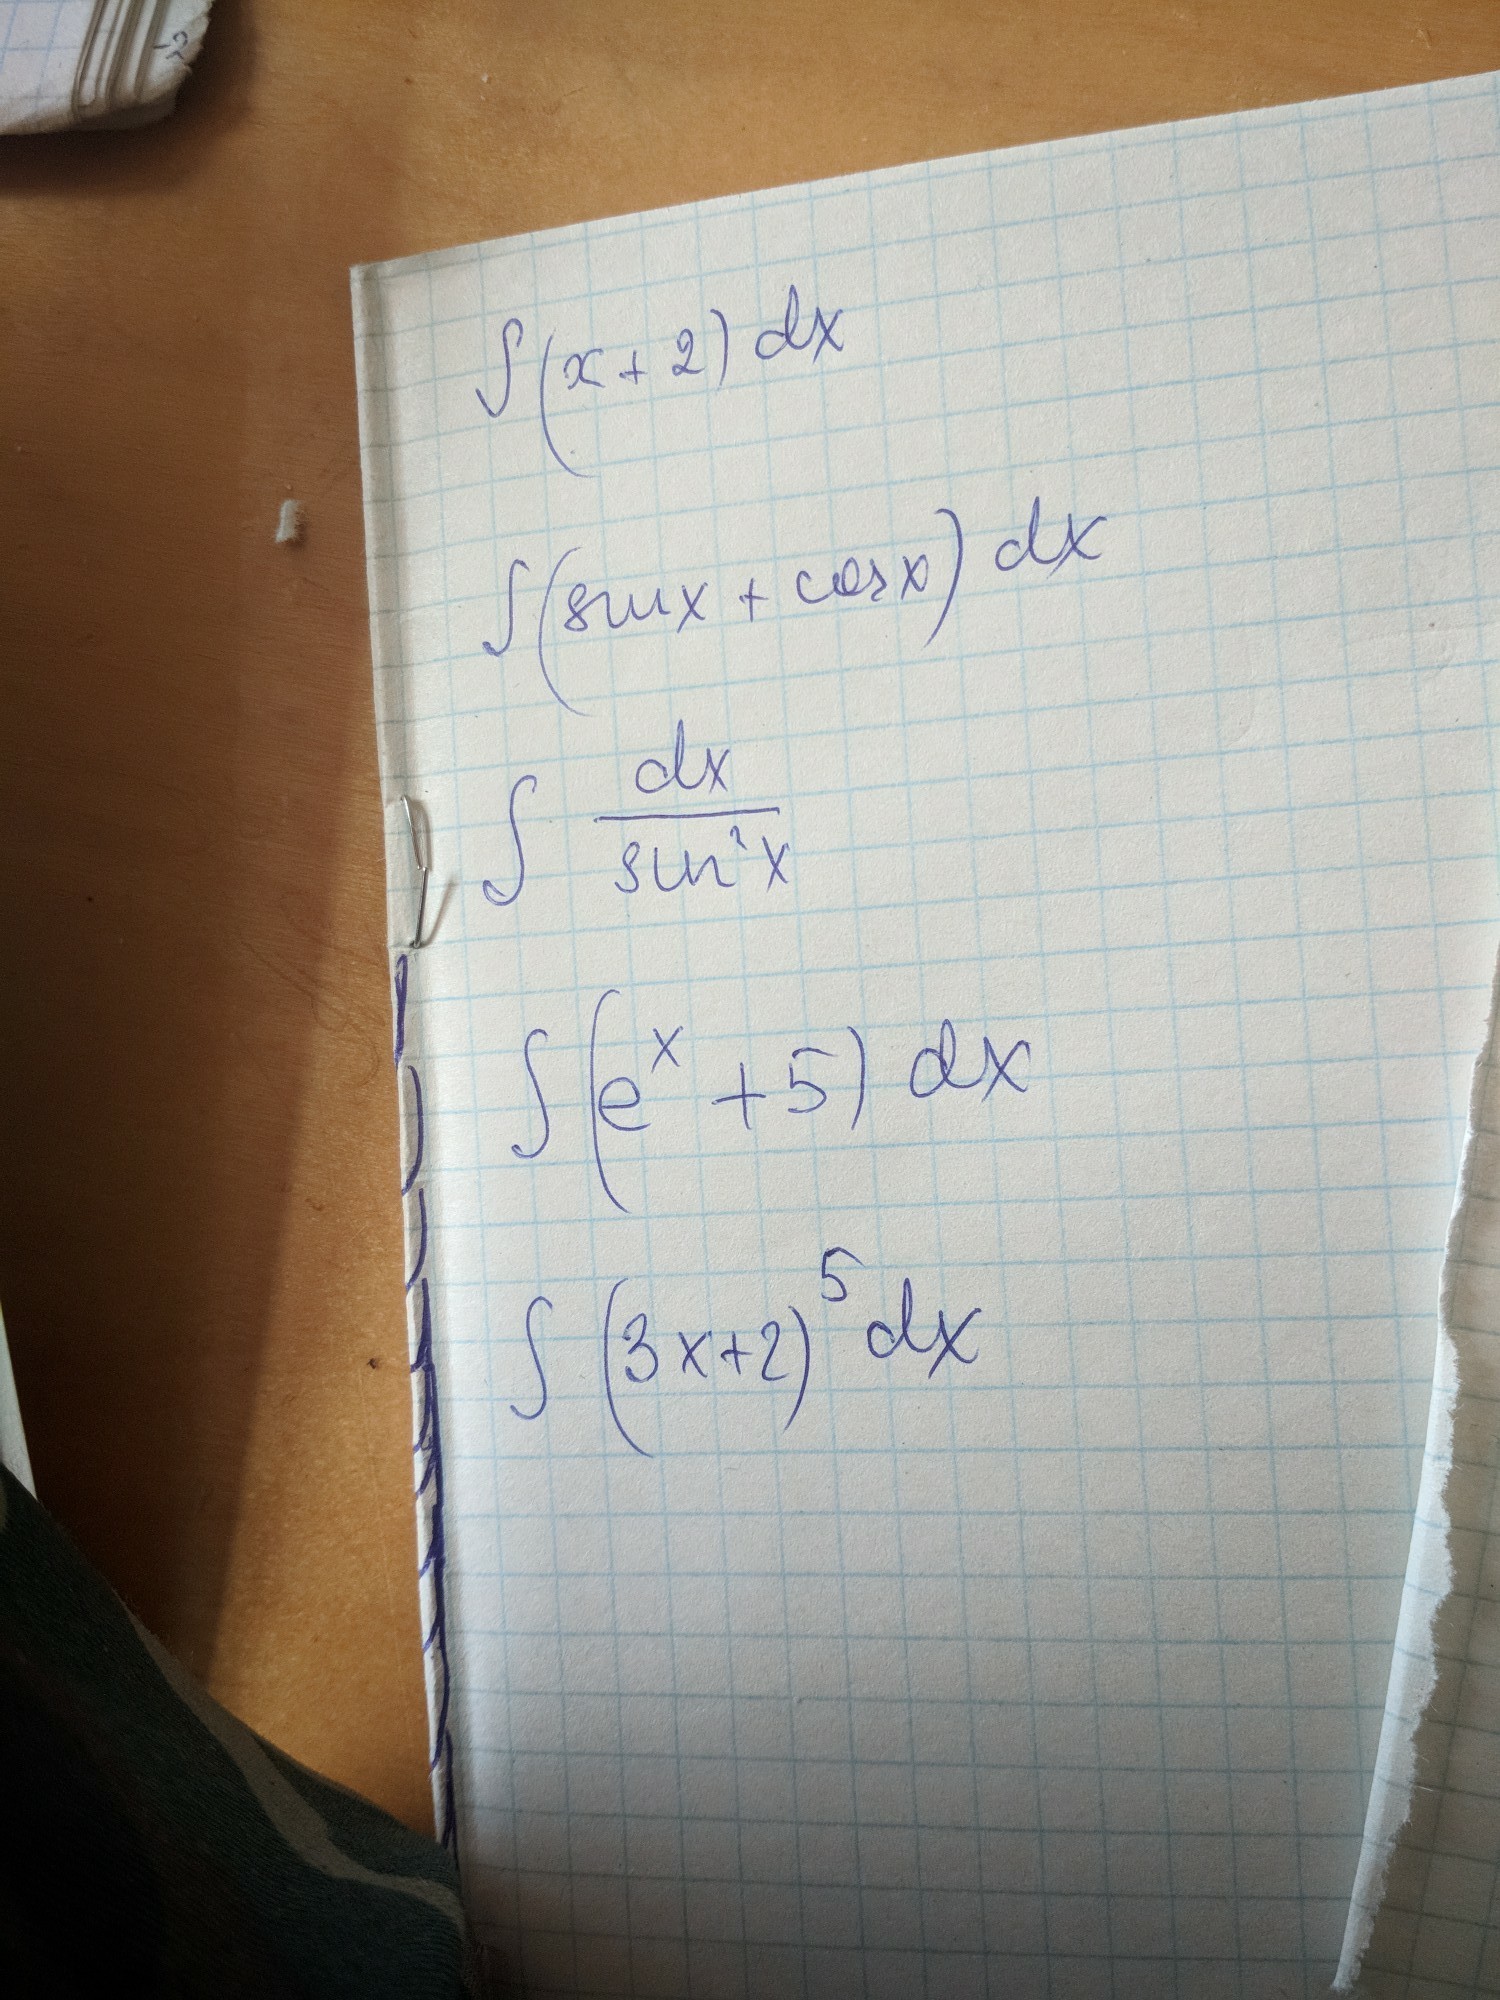 ∫(x+2) dx
∫(sinx + cosx) dx
∫ dx/sin²x
∫(eˣ +5) dx
∫ (3x+2)⁵ dx